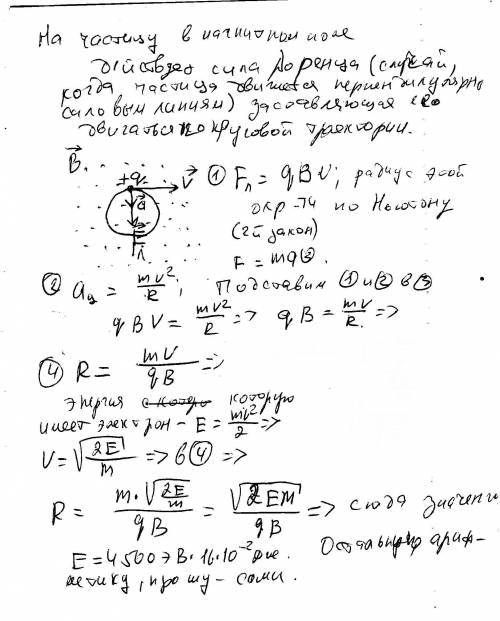 На частицу в магнитном поле
действует сила Лоренца (случай,
когда частица движется перпендикулярно
силовым линиям) заставляющая его
двигаться по круговой траектории.
B⃗. +q V⃗ ① Fл = qBV; радиус этой
a⃗ окр-ти по Ньютону
F⃗л (2й закон)
F = ma③.
② aц = mv²/R; Подставим ① и ② в ③
qBV = mv²/R => qB = mv/R =>
④ R = mV/qB =>
Энергия которую
имеет электрон – E = mv²/2 =>
V = √(2E/m) => в④ =>
R = m·√(2E/m)/qB = √(2Em)/qB => сюда значения
E = 4500эВ·16·10⁻² Дж. Остальную ариф-
метику, прошу - сами.